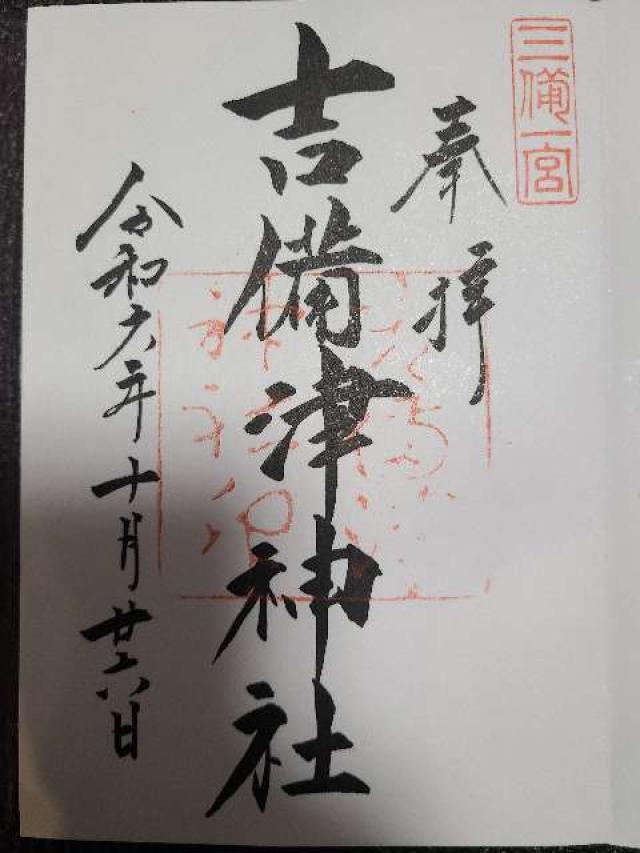 三備一宮
奉拝
吉備津神社
令和六年十月廿六日